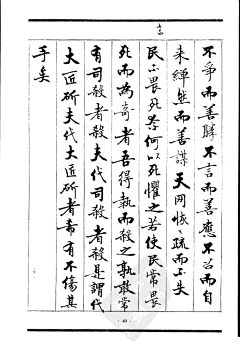 不爭而善勝不言而善應不召而自
來繟然而善謀天网恢〻疏而不失
民不畏死奈何以死懼之若使民常畏
死而為奇者吾得執而殺之孰敢常
有司殺者殺夫代司殺者殺是謂代
大匠斫夫代大匠斫者希有不傷其
手矣